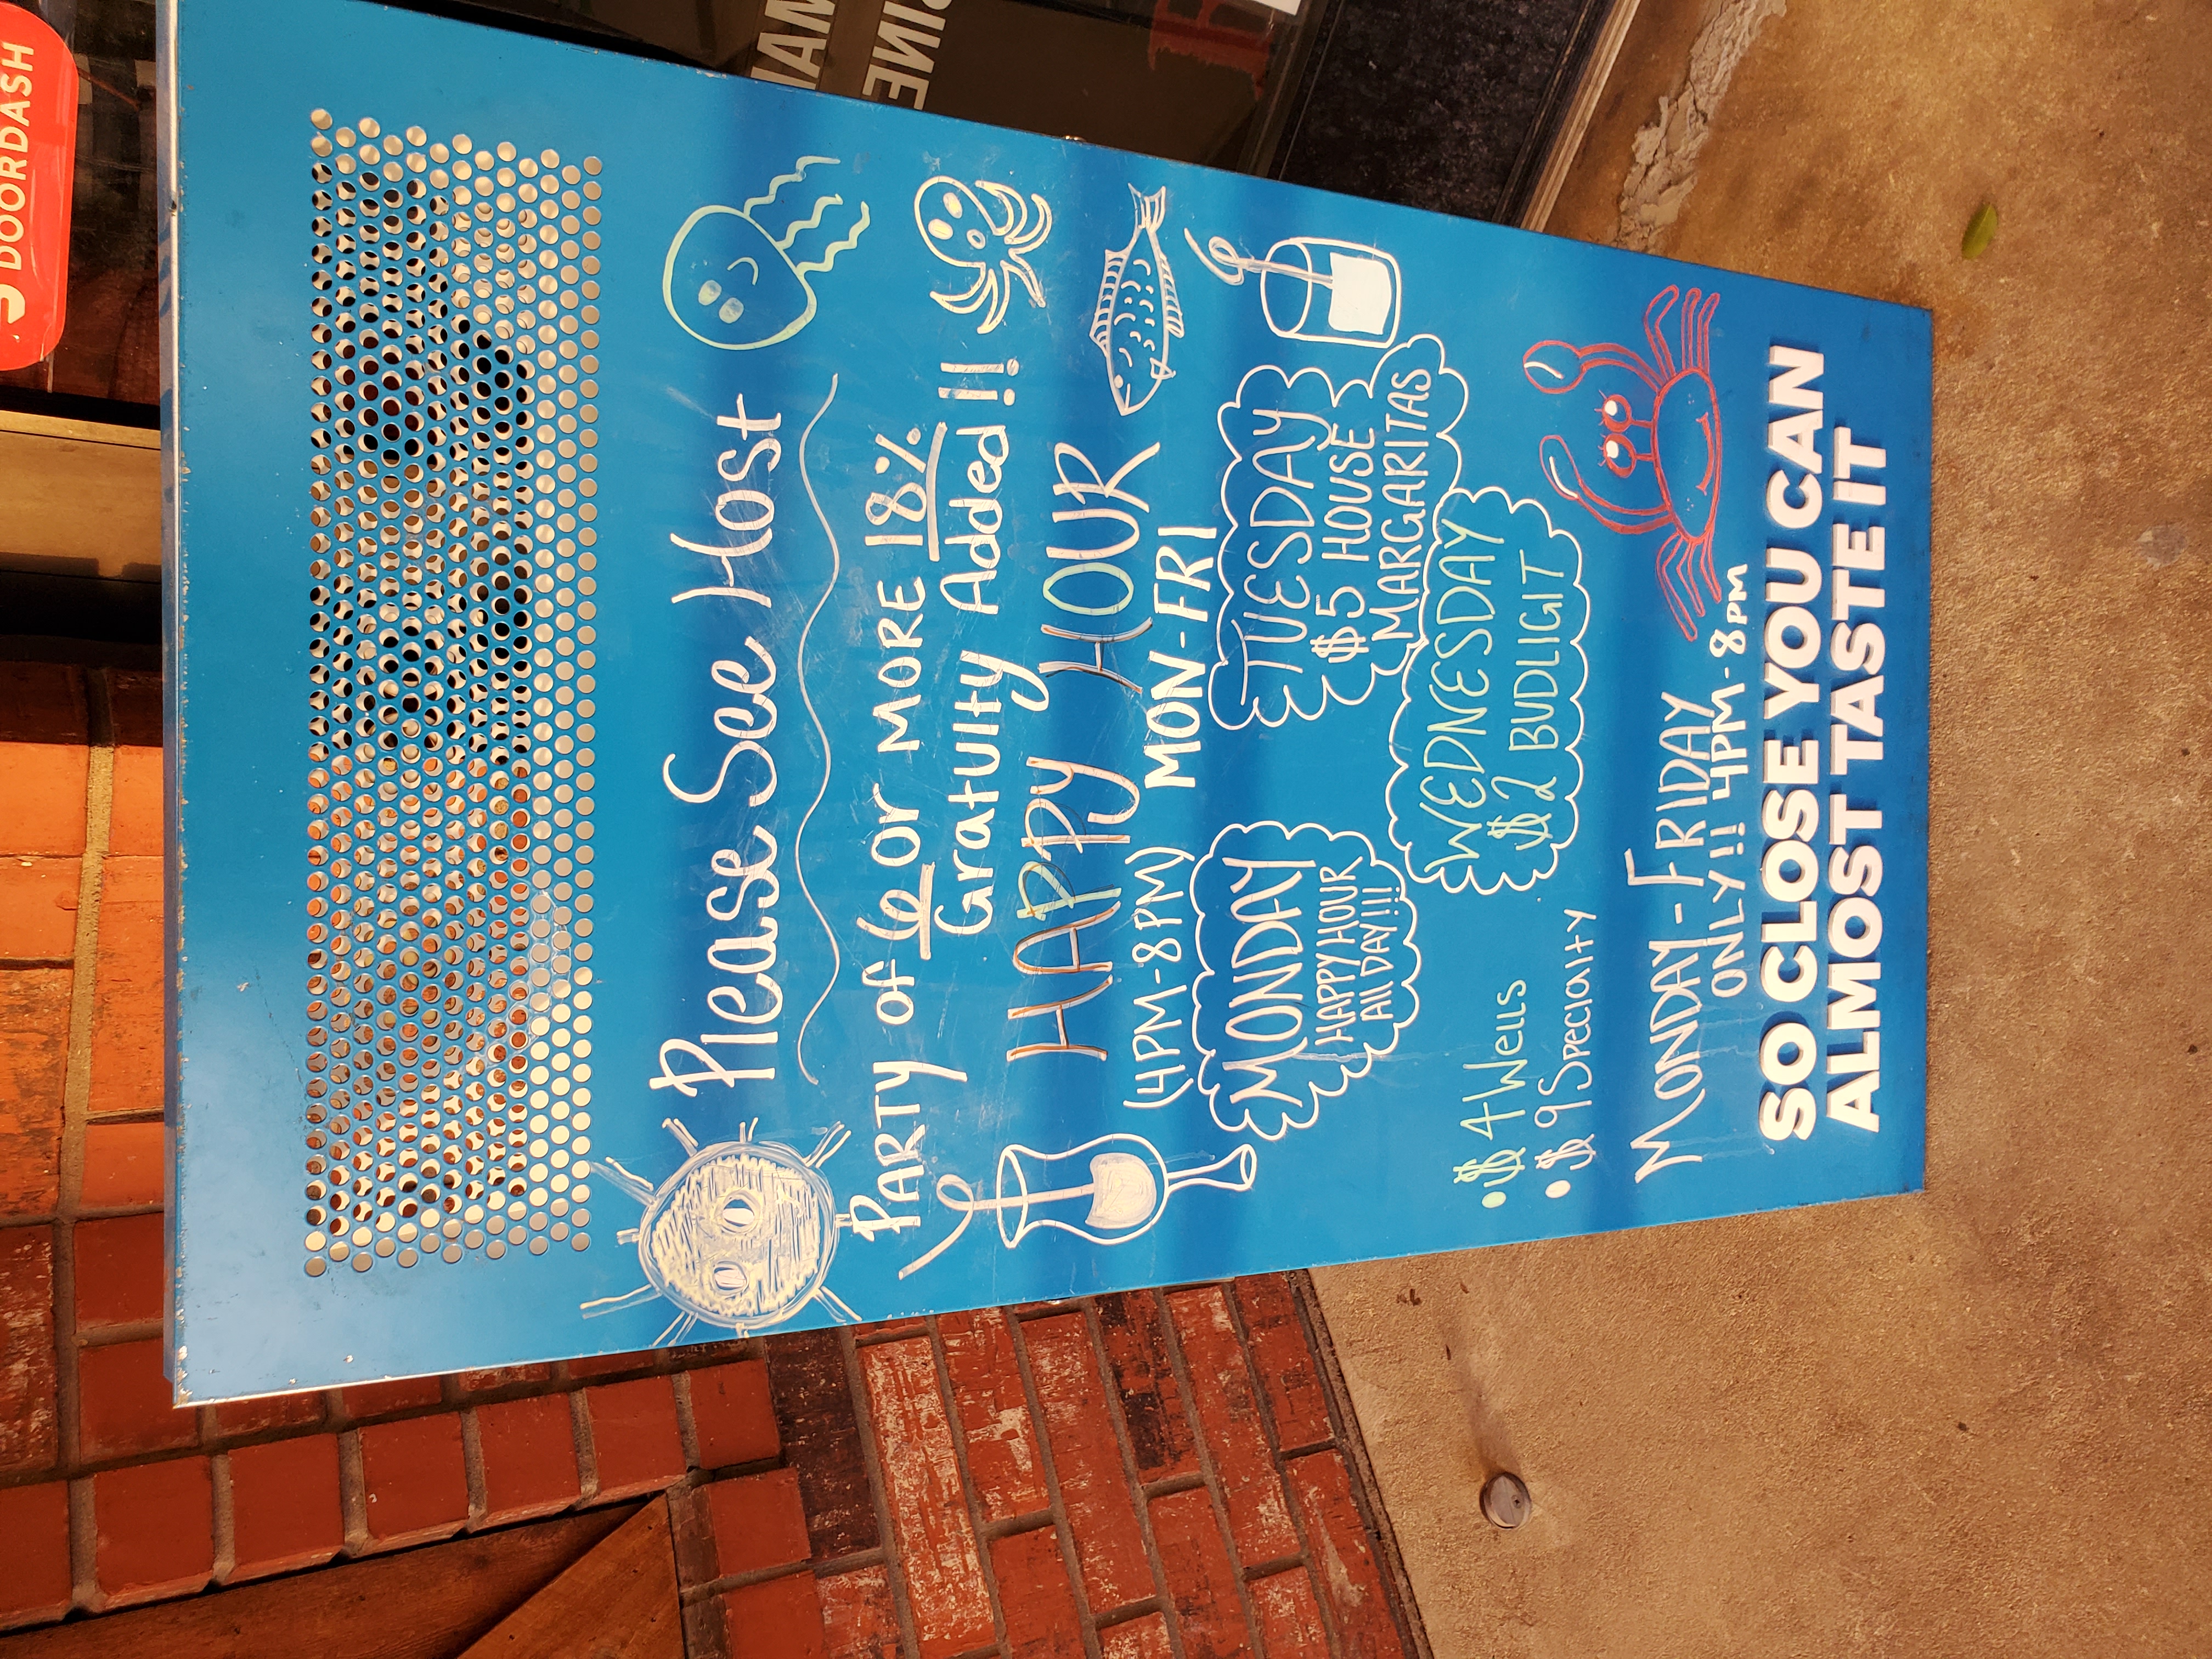 DOORDASH
Please See Host
PARTY of 6 or MORE 18%
Gratuity Added!!
HAPPY HOUR
(4PM-8PM) MON-FRI
MONDAY
HAPPY HOUR
All DAY!!!
TUESDAY
$5 HOUSE
MARGARITAS
WEDNESDAY
$2 BUDLIGIT
• $4 Wells
• $9 Specialty
MONDAY-FRIDAY
ONLY!! 4PM-8PM
SO CLOSE YOU CAN
ALMOST TASTE IT